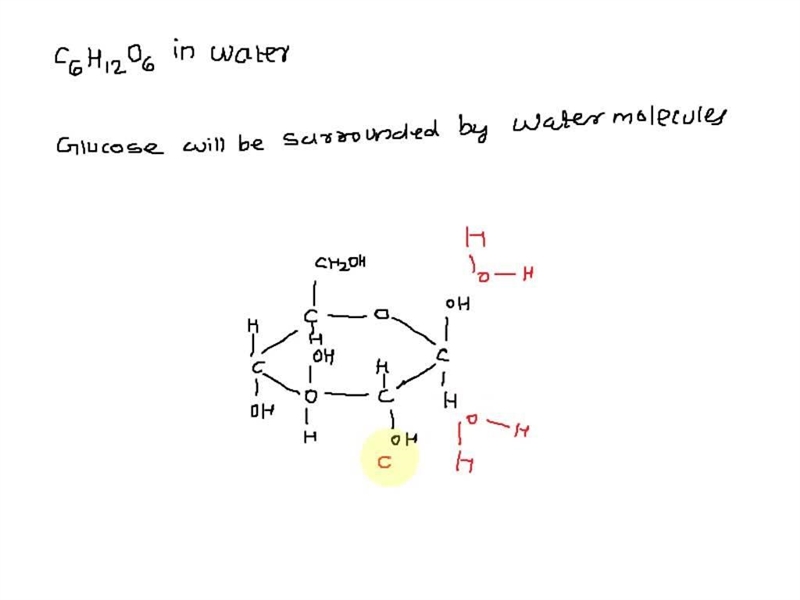 C6H12O6 in water
Glucose will be surrounded by water molecules
H
O — H
CH2OH
OH
H
C
O
H
OH
H
C
C
O
C
H
OH
H
OH
O
H
H
C
H